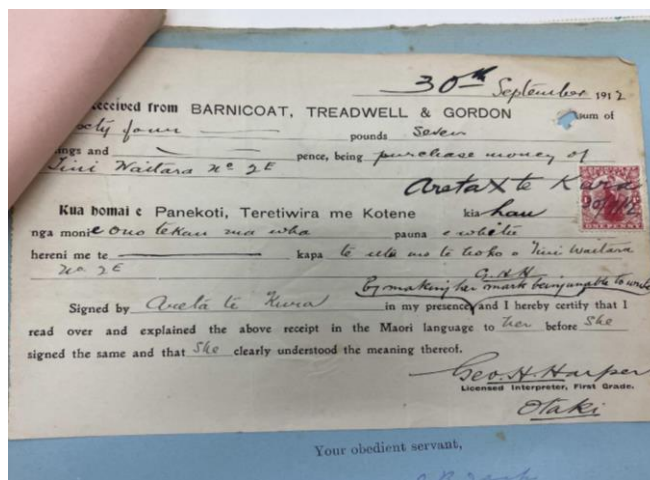 30th September 1912
Received from BARNICOAT, TREADWELL & GORDON sum of
Sixty four pounds Seven
ings and pence, being purchase money of
Tini Waitara No 2E
Areta X te Kura
30/9/12
ONE PENNY
Kua homai e Panekoti, Teretiwira me Kotene kia hau
nga moni e ono tekau ma wha pauna e whitu
hereni me te kapa te utu mo te hoko o Tini Waitara
No. 2E
G.H.H
by making her mark being unable to write
Signed by Areta te Kura in my presence and I hereby certify that I
read over and explained the above receipt in the Maori language to her before She
signed the same and that She clearly understood the meaning thereof.
Geo. H. Harper
Licensed Interpreter, First Grade.
Otaki
Your obedient servant,